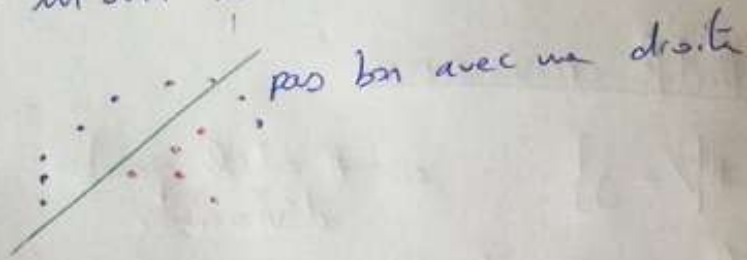 pas bon avec une droite